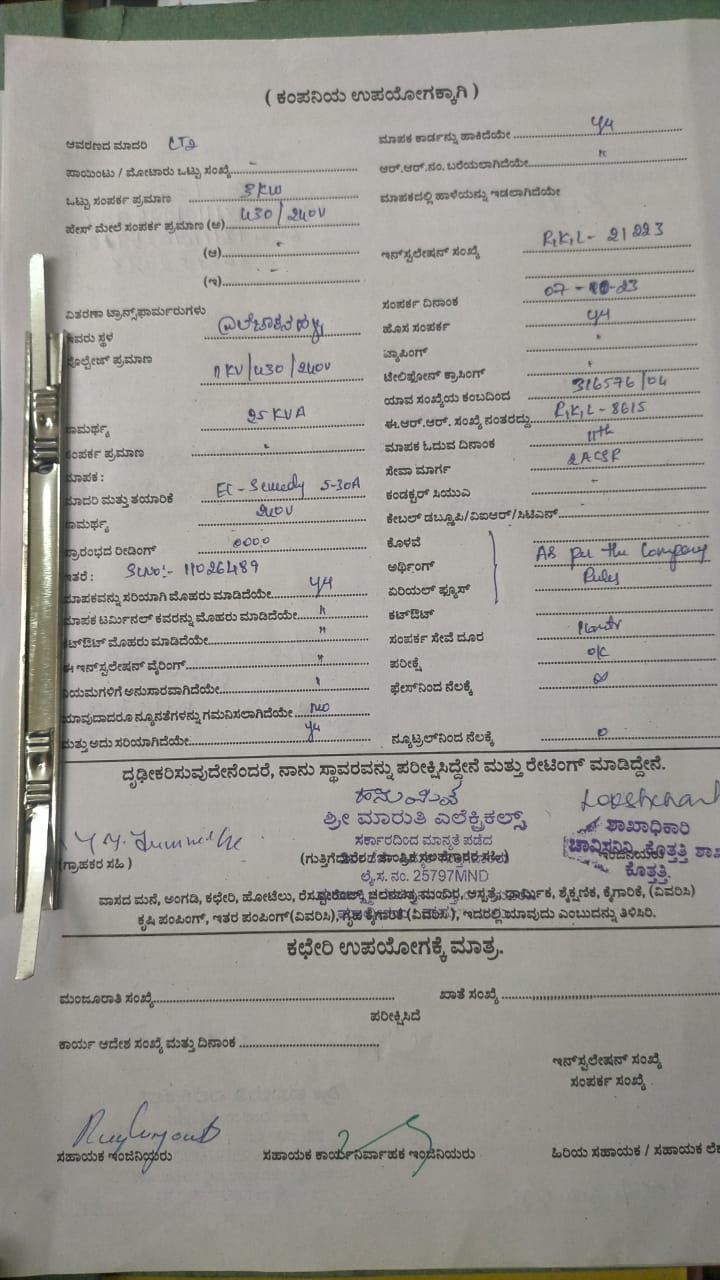 ( ಕಂಪನಿಯ ಉಪಯೋಗಕ್ಕಾಗಿ )
ಆವರಣದ ಮಾದರಿ CT2
ಪಾಯಿಂಟು / ಮೋಟಾರು ಒಟ್ಟು ಸಂಖ್ಯೆ -
ಒಟ್ಟು ಸಂಪರ್ಕ ಪ್ರಮಾಣ 3KW
ಫೇಸ್ ಮೇಲೆ ಸಂಪರ್ಕ ಪ್ರಮಾಣ (ಅ) 430/240V
(ಆ)
(ಇ)
ವಿತರಣಾ ಟ್ರಾನ್ಸ್‌ಫಾರ್ಮರುಗಳು
ಇವರು ಸ್ಥಳ
ವೋಲ್ಟೇಜ್ ಪ್ರಮಾಣ 11KV/430/240V
ಸಾಮರ್ಥ್ಯ 25KVA
ಸಂಪರ್ಕ ಪ್ರಮಾಣ
ಮಾಪಕ :
ಮಾದರಿ ಮತ್ತು ತಯಾರಿಕೆ 5-30A
ಸಾಮರ್ಥ್ಯ 240V
ಪ್ರಾರಂಭದ ರೀಡಿಂಗ್ 0000
ಇತರೆ : Sl.No:- 11026489
ಮಾಪಕವನ್ನು ಸರಿಯಾಗಿ ಮೊಹರು ಮಾಡಿದೆಯೇ
ಮಾಪಕ ಟರ್ಮಿನಲ್ ಕವರನ್ನು ಮೊಹರು ಮಾಡಿದೆಯೇ "
ಕಟ್‌ಔಟ್ ಮೊಹರು ಮಾಡಿದೆಯೇ "
ಈ ಇನ್‌ಸ್ಟಲೇಷನ್ ವೈರಿಂಗ್ "
ನಿಯಮಗಳಿಗೆ ಅನುಸಾರವಾಗಿದೆಯೇ
ಯಾವುದಾದರೂ ನ್ಯೂನತೆಗಳನ್ನು ಗಮನಿಸಲಾಗಿದೆಯೇ no
ಮತ್ತು ಅದು ಸರಿಯಾಗಿದೆಯೇ
ಮಾಪಕ ಕಾರ್ಡನ್ನು ಹಾಕಿದೆಯೇ
ಆರ್.ಆರ್.ನಂ. ಬರೆಯಲಾಗಿದೆಯೇ "
ಮಾಪಕದಲ್ಲಿ ಹಾಳೆಯನ್ನು ಇಡಲಾಗಿದೆಯೇ
ಇನ್‌ಸ್ಟಲೇಷನ್ ಸಂಖ್ಯೆ R,K,L- 21223
ಸಂಪರ್ಕ ದಿನಾಂಕ
ಹೊಸ ಸಂಪರ್ಕ
ಟ್ಯಾಪಿಂಗ್
ಟೆಲಿಫೋನ್ ಕ್ರಾಸಿಂಗ್
ಯಾವ ಸಂಖ್ಯೆಯ ಕಂಬದಿಂದ 316576/04
ಈ.ಆರ್.ಆರ್. ಸಂಖ್ಯೆ ನಂತರದ್ದು R,K,L- 8615
ಮಾಪಕ ಓದುವ ದಿನಾಂಕ 11th
ಸೇವಾ ಮಾರ್ಗ 2 ACSR
ಕಂಡಕ್ಟರ್ ಸಿಯುಎ -
ಕೇಬಲ್ ಡಬ್ಲ್ಯೂಪಿ/ವಿಐಆರ್/ಸಿಟಿಎನ್
ಕೊಳವೆ
ಅರ್ಥಿಂಗ್ As per the Company
ಏರಿಯಲ್ ಫ್ಯೂಸ್ Rules
ಕಟ್‌ಔಟ್
ಸಂಪರ್ಕ ಸೇವೆ ದೂರ
ಪರೀಕ್ಷೆ O/C
ಫೇಸ್‌ನಿಂದ ನೆಲಕ್ಕೆ ∞
ನ್ಯೂಟ್ರಲ್‌ನಿಂದ ನೆಲಕ್ಕೆ 0
ದೃಢೀಕರಿಸುವುದೇನೆಂದರೆ, ನಾನು ಸ್ಥಾವರವನ್ನು ಪರೀಕ್ಷಿಸಿದ್ದೇನೆ ಮತ್ತು ರೇಟಿಂಗ್ ಮಾಡಿದ್ದೇನೆ.
ಶ್ರೀ ಮಾರುತಿ ಎಲೆಕ್ಟ್ರಿಕಲ್ಸ್
ಸರ್ಕಾರದಿಂದ ಮಾನ್ಯತೆ ಪಡೆದ
ಲೈ.ಸ. ನಂ. 25797MND
ಶಾಖಾಧಿಕಾರಿ
ಚಾವಿಸನಿನಿ, ಕೊತ್ತತ್ತಿ ಶಾಖೆ
ಕೊತ್ತತ್ತಿ.
(ಗ್ರಾಹಕರ ಸಹಿ)
ವಾಸದ ಮನೆ, ಅಂಗಡಿ, ಕಛೇರಿ, ಹೋಟೆಲು, ರೆಸ್ಟೋರೆಂಟ್, ಚಲನಚಿತ್ರ ಮಂದಿರ, ಆಸ್ಪತ್ರೆ, ಧಾರ್ಮಿಕ, ಶೈಕ್ಷಣಿಕ, ಕೈಗಾರಿಕೆ, (ವಿವರಿಸಿ)
ಕೃಷಿ ಪಂಪಿಂಗ್, ಇತರ ಪಂಪಿಂಗ್(ವಿವರಿಸಿ), ಗೃಹ ಕೈಗಾರಿಕೆ (ವಿವರಿಸಿ), ಇದರಲ್ಲಿ ಯಾವುದು ಎಂಬುದನ್ನು ತಿಳಿಸಿರಿ.
ಕಛೇರಿ ಉಪಯೋಗಕ್ಕೆ ಮಾತ್ರ.
ಮಂಜೂರಾತಿ ಸಂಖ್ಯೆ ಖಾತೆ ಸಂಖ್ಯೆ
ಪರೀಕ್ಷಿಸಿದೆ
ಕಾರ್ಯ ಆದೇಶ ಸಂಖ್ಯೆ ಮತ್ತು ದಿನಾಂಕ
ಇನ್‌ಸ್ಟಲೇಷನ್ ಸಂಖ್ಯೆ
ಸಂಪರ್ಕ ಸಂಖ್ಯೆ
ಸಹಾಯಕ ಇಂಜಿನಿಯರು ಸಹಾಯಕ ಕಾರ್ಯನಿರ್ವಾಹಕ ಇಂಜಿನಿಯರು ಹಿರಿಯ ಸಹಾಯಕ / ಸಹಾಯಕ